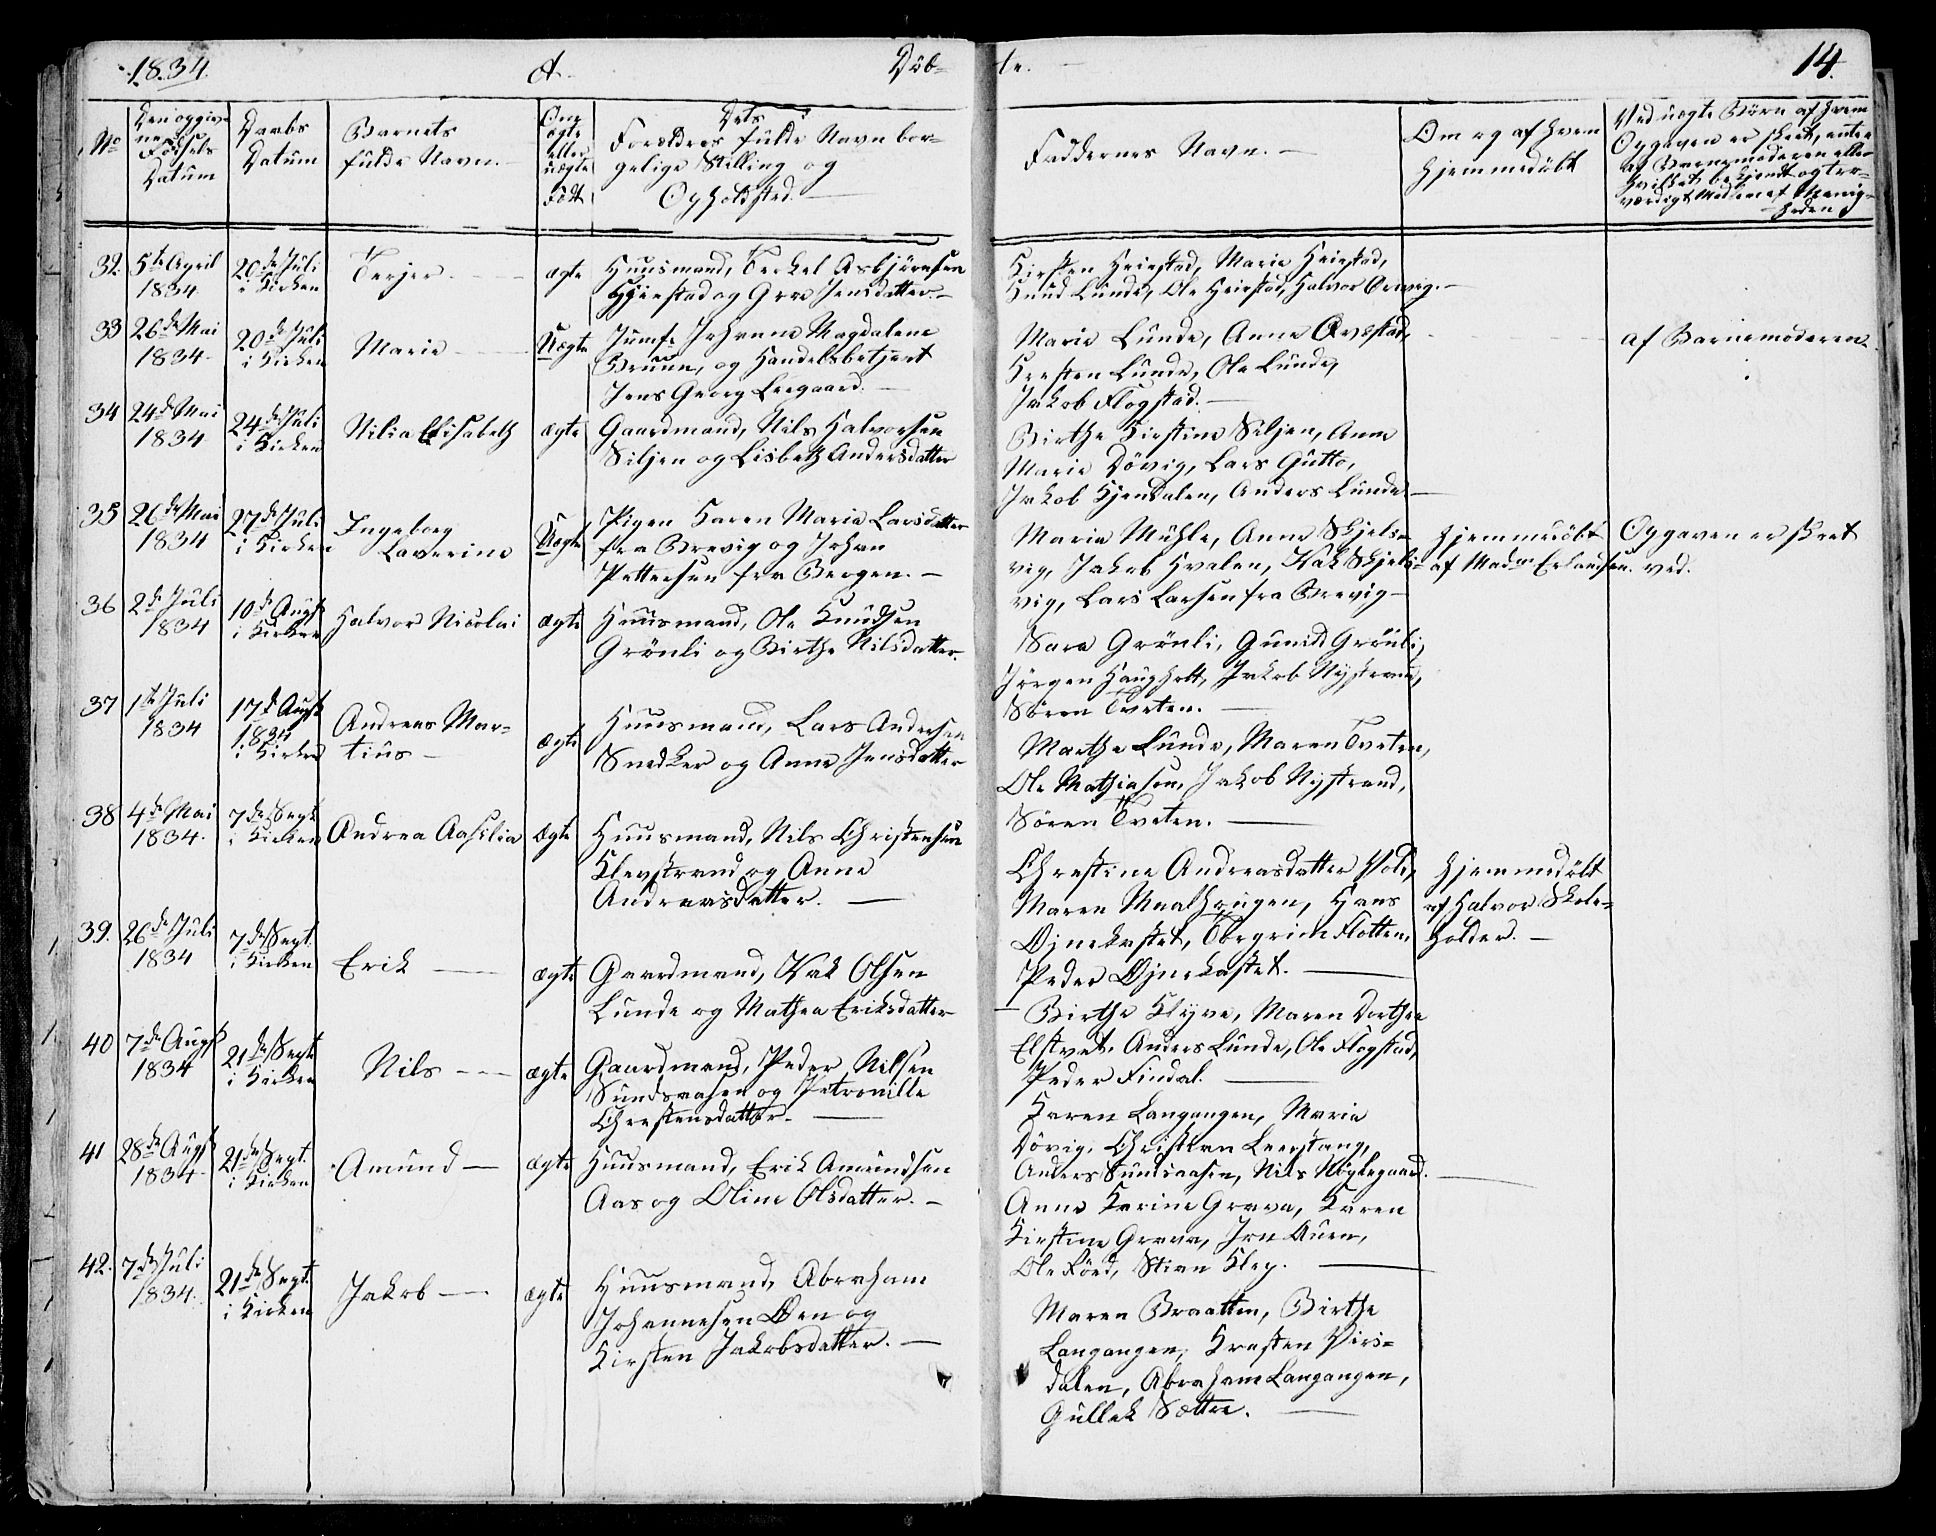 1834.
A.
Döb-
te.
14.
No
Den opgiv-
ne
Födsels
Datum
Daabs
Datum
Barnets
fulde Navn.
Om
ægte
eller
uægte
Födt
Dets
Forældres fulde Navn bor-
gelige Stilling og
Opholdsted.
Faddernes Navn.
Om og af hvem
hjemmedöbt
Ved uægte Börn af hvem
Opgaven er skeet, enten
af Barnemoderen eller
hvilket bekjendt og tro-
værdigt Medlem af Menig-
heden
32. 5te April
1834
20de Juli
i Kirken
Terjer
ægte
Huusmand, Terkel Asbjörnsen
Heiestad og Gro Jensdatter.
Kirsten Heiestad, Marie Heiestad,
Knud Lunde, Ole Heiestad, Halvor Örvig.
33 26de Mai
1834
20de Juli
i Kirken
Marie
Uægte
Jumfr Johanne Magdalene
Bruun, og Handelsbetjent
Jens Georg Leegaard.
Marie Lunde, Anne Ovestad,
Kresten Lunde, Ole Lunde,
Jakob Flogstad.
af Barnemoderen.
34 24de Mai
1834
24de Juli
i Kirken
Nilia Elisabeth
ægte
Gaardmand, Nils Halvorsen
Siljen og Lisbeth Andersdatter
Birthe Kirstine Siljen, Anne
Marie Dövig, Lars Gutto,
Jakob Kjendalen, Anders Lunde
35 26de Mai
1834
27de Juli
i Kirken
Ingeborg
Laverine
Uægte
Pigen Karen Maria Larsdatter
fra Brevig og Johan
Pettersen fra Bergen.
Maria Mühle, Anne Skjels-
vig, Jakob Hvalen, Isak Skjels-
vig, Lars Larsen fra Brevig
Hjemmedöbt
af Madm Erlandsen.
Opgaven er skeet
ved.
36 2de Juli
1834
10de Augst
i Kirken
Halvor Nicolai
ægte
Huusmand, Ole Knudsen
Grönli og Birthe Nilsdatter.
Sara Grönli, Gunild Grönli,
Jörgen Haugholt, Jakob Nystrand,
Sören Tveten.
37 1te Juli
1834
17de Augst
1834
i Kirken
Andreas Mar-
tius
ægte
Huusmand, Lars Andersen
Snedker og Anne Jensdatter
Marthe Lunde, Maren Tveten,
Ole Mathiasen, Jakob Nystrand,
Sören Tveten.
38 4de Mai
1834.
7de Sept.
i Kirken
Andrea Aaselia
ægte
Huusmand, Nils Christensen
Klevstrand og Anne
Andreasdatter.
Chrestine Andreasdatter
Maren Hans
Öjnekastet, Flotten,
Peder Öjnekastet.
Hjemmedöbt
af Halvor Skole-
holder.
39. 26de Juli
1834
7de Sept.
i Kirken
Erik
ægte
Gaardmand, Isak Olsen
Lunde og Mathea Eriksdatter
Birthe Klyve, Maren Dorthea
Elstvet. Anders Lunde, Ole Flogstad,
Peder Findal.
40 7de Augst
1834
21de Sept
i Kirken
Nils
ægte
Gaardmand, Peder Nilsen
Sundsaasen og Petronille
Chrestensdatter.
Karen Langangen, Maria
Dövig, Christian Leerstang,
Anders Sundsaasen, Nils Nöglegaard.
41 28de Augst
1834
21de Sept.
i Kirken
Amund
ægte
Huusmand, Erik Amundsen
Aas og Oline Olsdatter.
Anne Karine Grava, Karen
Kirstine Grava, Jon Auen,
Ole Röed, Stian Klep.
42. 7de Juli
1834.
21de Sept.
i Kirken
Jakob
ægte
Huusmand, Abraham
Johannesen Öen og
Kirsten Jakobsdatter.
Maren Braatten, Birthe
Langangen, Kresten Virs-
dalen, Abraham Langangen,
Gullek Sættre.